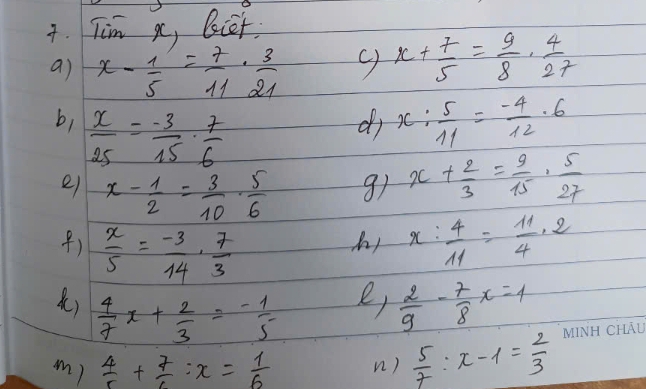 7. Tìm x, biết:
a) x - 1/5 = 7/11 . 3/21 c) x + 7/5 = 9/8 . 4/27
b, x/25 = -3/15 . 7/6 d, x : 5/11 = -4/12 . 6
e) x - 1/2 = 3/10 . 5/6 g) x + 2/3 = 9/15 . 5/27
f) x/5 = -3/14 . 7/3 h, x : 4/11 = 11/4 . 2
k) 4/7 x + 2/3 = -1/5 l, 2/9 - 7/8 x = 1
MINH CHÂU
m) 4/5 + 7/6 : x = 1/6 n) 5/7 : x - 1 = 2/3